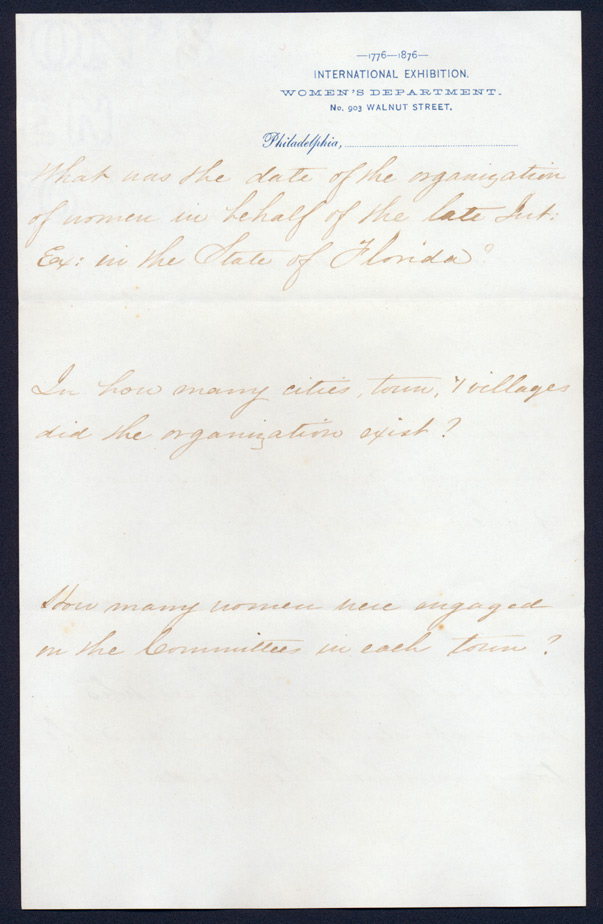 —1776—1876—
INTERNATIONAL EXHIBITION.
WOMEN'S DEPARTMENT.
No. 903 WALNUT STREET.
Philadelphia,
What was the date of the organization
of women in behalf of the late Int:
Ex: in the State of Florida?
In how many cities, town, & villages
did the organization exist?
How many women were engaged
on the Committees in each town?